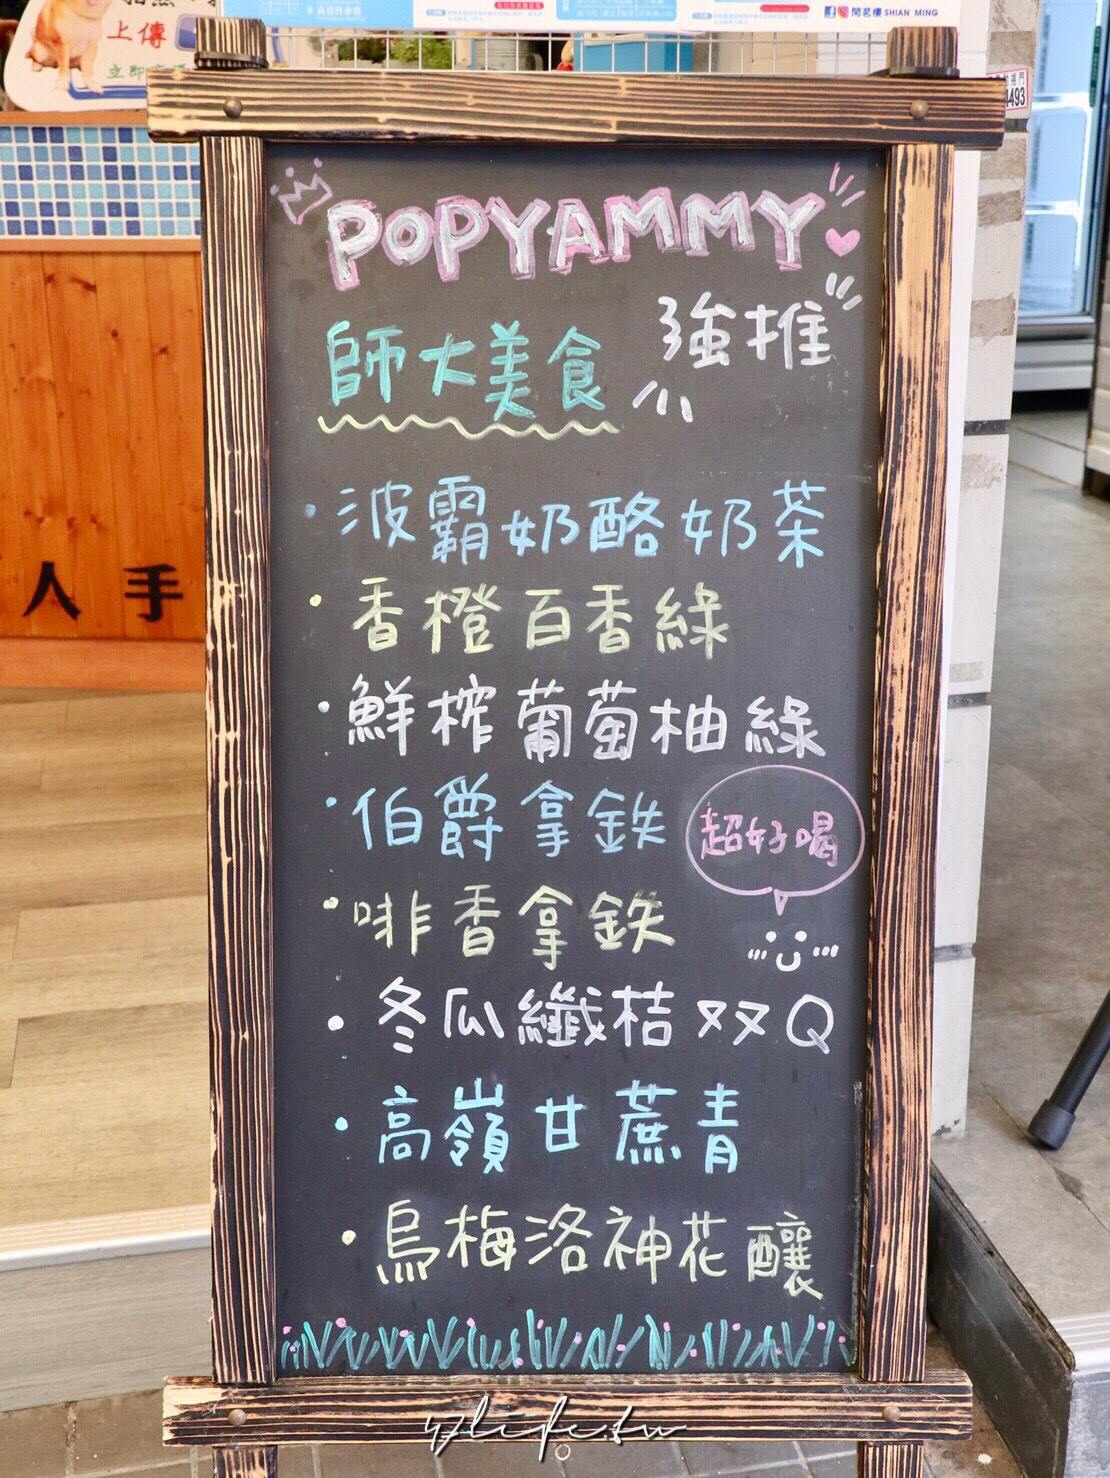 上傳
8 高嶺四季春
閒茗樓 SHIAN MING
493
人手
POPYAMMY
師大美食
強推
波霸奶酪奶茶
香橙百香綠
鮮榨葡萄柚綠
伯爵拿鉄
超好喝
啡香拿鉄
冬瓜纖桔双Q
高嶺甘蔗青
烏梅洛神花釀
47life.tw